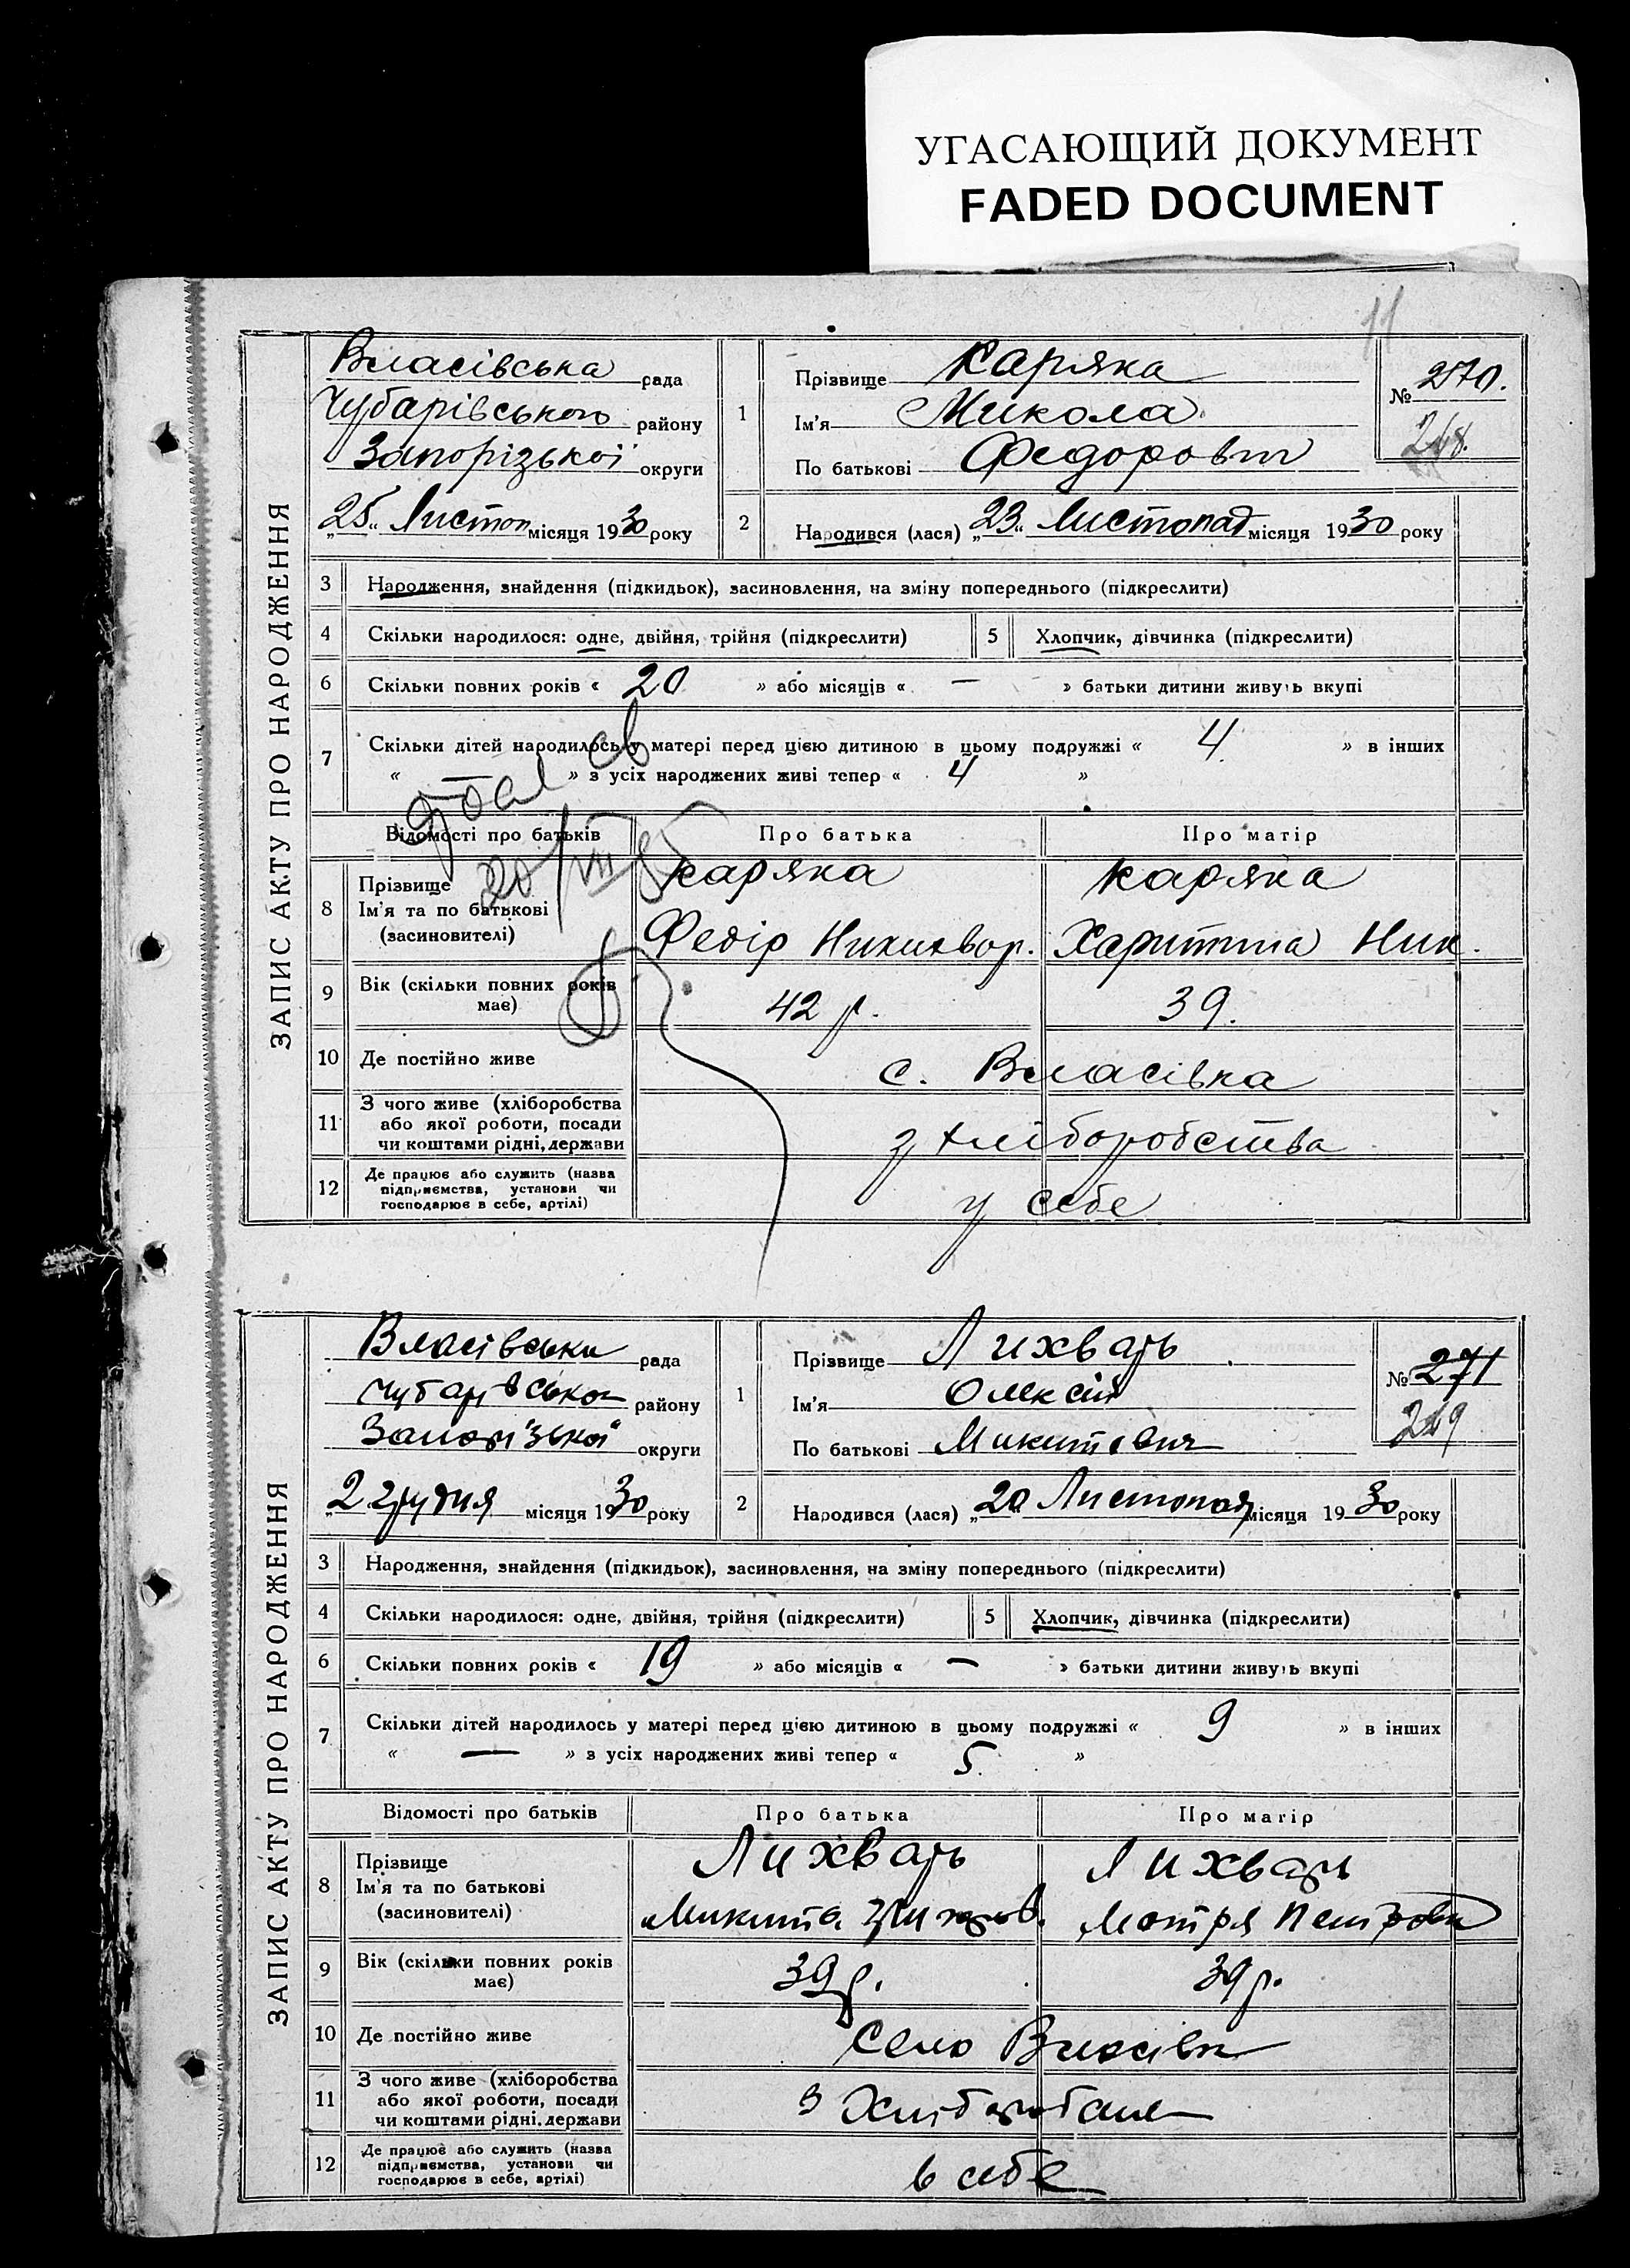 УГАСАЮЩИЙ ДОКУМЕНТ
FADED DOCUMENT
11
ЗАПИС АКТУ ПРО НАРОДЖЕННЯ
Власівська рада
Чубарівського району
Запорізької округи
„25“ Листоп місяця 1930 року
1
Прізвище Каряка
Ім'я Микола
По батькові Федорович
№ 270.
248.
2 Народився (лася) „23“ Листопад місяця 1930 року
3 Народження, знайдення (підкидьок), засиновлення, на зміну попереднього (підкреслити)
4 Скільки народилося: одне, двійня, трійня (підкреслити) 5 Хлопчик, дівчинка (підкреслити)
6 Скільки повних років « 20 » або місяців « — » батьки дитини живуть вкупі
7 Скільки дітей народилось у матері перед цією дитиною в цьому подружжі « 4 » в інших
« » з усіх народжених живі тепер « 4 »
Відомості про батьків Про батька Про матір
8 Прізвище
Ім'я та по батькові
(засиновителі)
Каряка Каряка
Федір Никихвор. Харитина Ник.
9 Вік (скільки повних років
має)
42 р. 39.
10 Де постійно живе с. Власівка
11 З чого живе (хліборобства
або якої роботи, посади
чи коштами рідні, держави
з хліборобства
12 Де працює або служить (назва
підприємства, установи чи
господарює в себе, артілі)
у себе
ЗАПИС АКТУ ПРО НАРОДЖЕННЯ
Власівська рада
Чубарівсько району
Запорізької округи
„2 грудня місяця 1930 року
1
Прізвище Лихварь
Ім'я Олексій
По батькові Микитович
№ 271
249
2 Народився (лася) „20 Листопад місяця 1930 року
3 Народження, знайдення (підкидьок), засиновлення, на зміну попереднього (підкреслити)
4 Скільки народилося: одне, двійня, трійня (підкреслити) 5 Хлопчик, дівчинка (підкреслити)
6 Скільки повних років « 19 » або місяців « — » батьки дитини живуть вкупі
7 Скільки дітей народилось у матері перед цією дитиною в цьому подружжі « 9 » в інших
« — » з усіх народжених живі тепер « 5. »
Відомості про батьків Про батька Про матір
8 Прізвище
Ім'я та по батькові
(засиновителі)
Лихварь Лихварь
Микита Мотря Петровна
9 Вік (скільки повних років
має)
39 р. 39 р.
10 Де постійно живе Село Власівка
11 З чого живе (хліборобства
або якої роботи, посади
чи коштами рідні, держави
З
12 Де працює або служить (назва
підприємства, установи чи
господарює в себе, артілі)
в себе